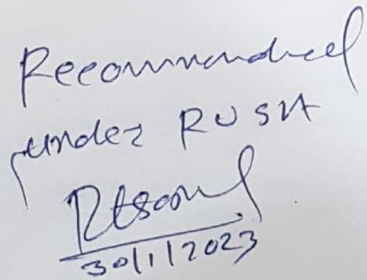 Recommended
under RUSA
30/1/2023